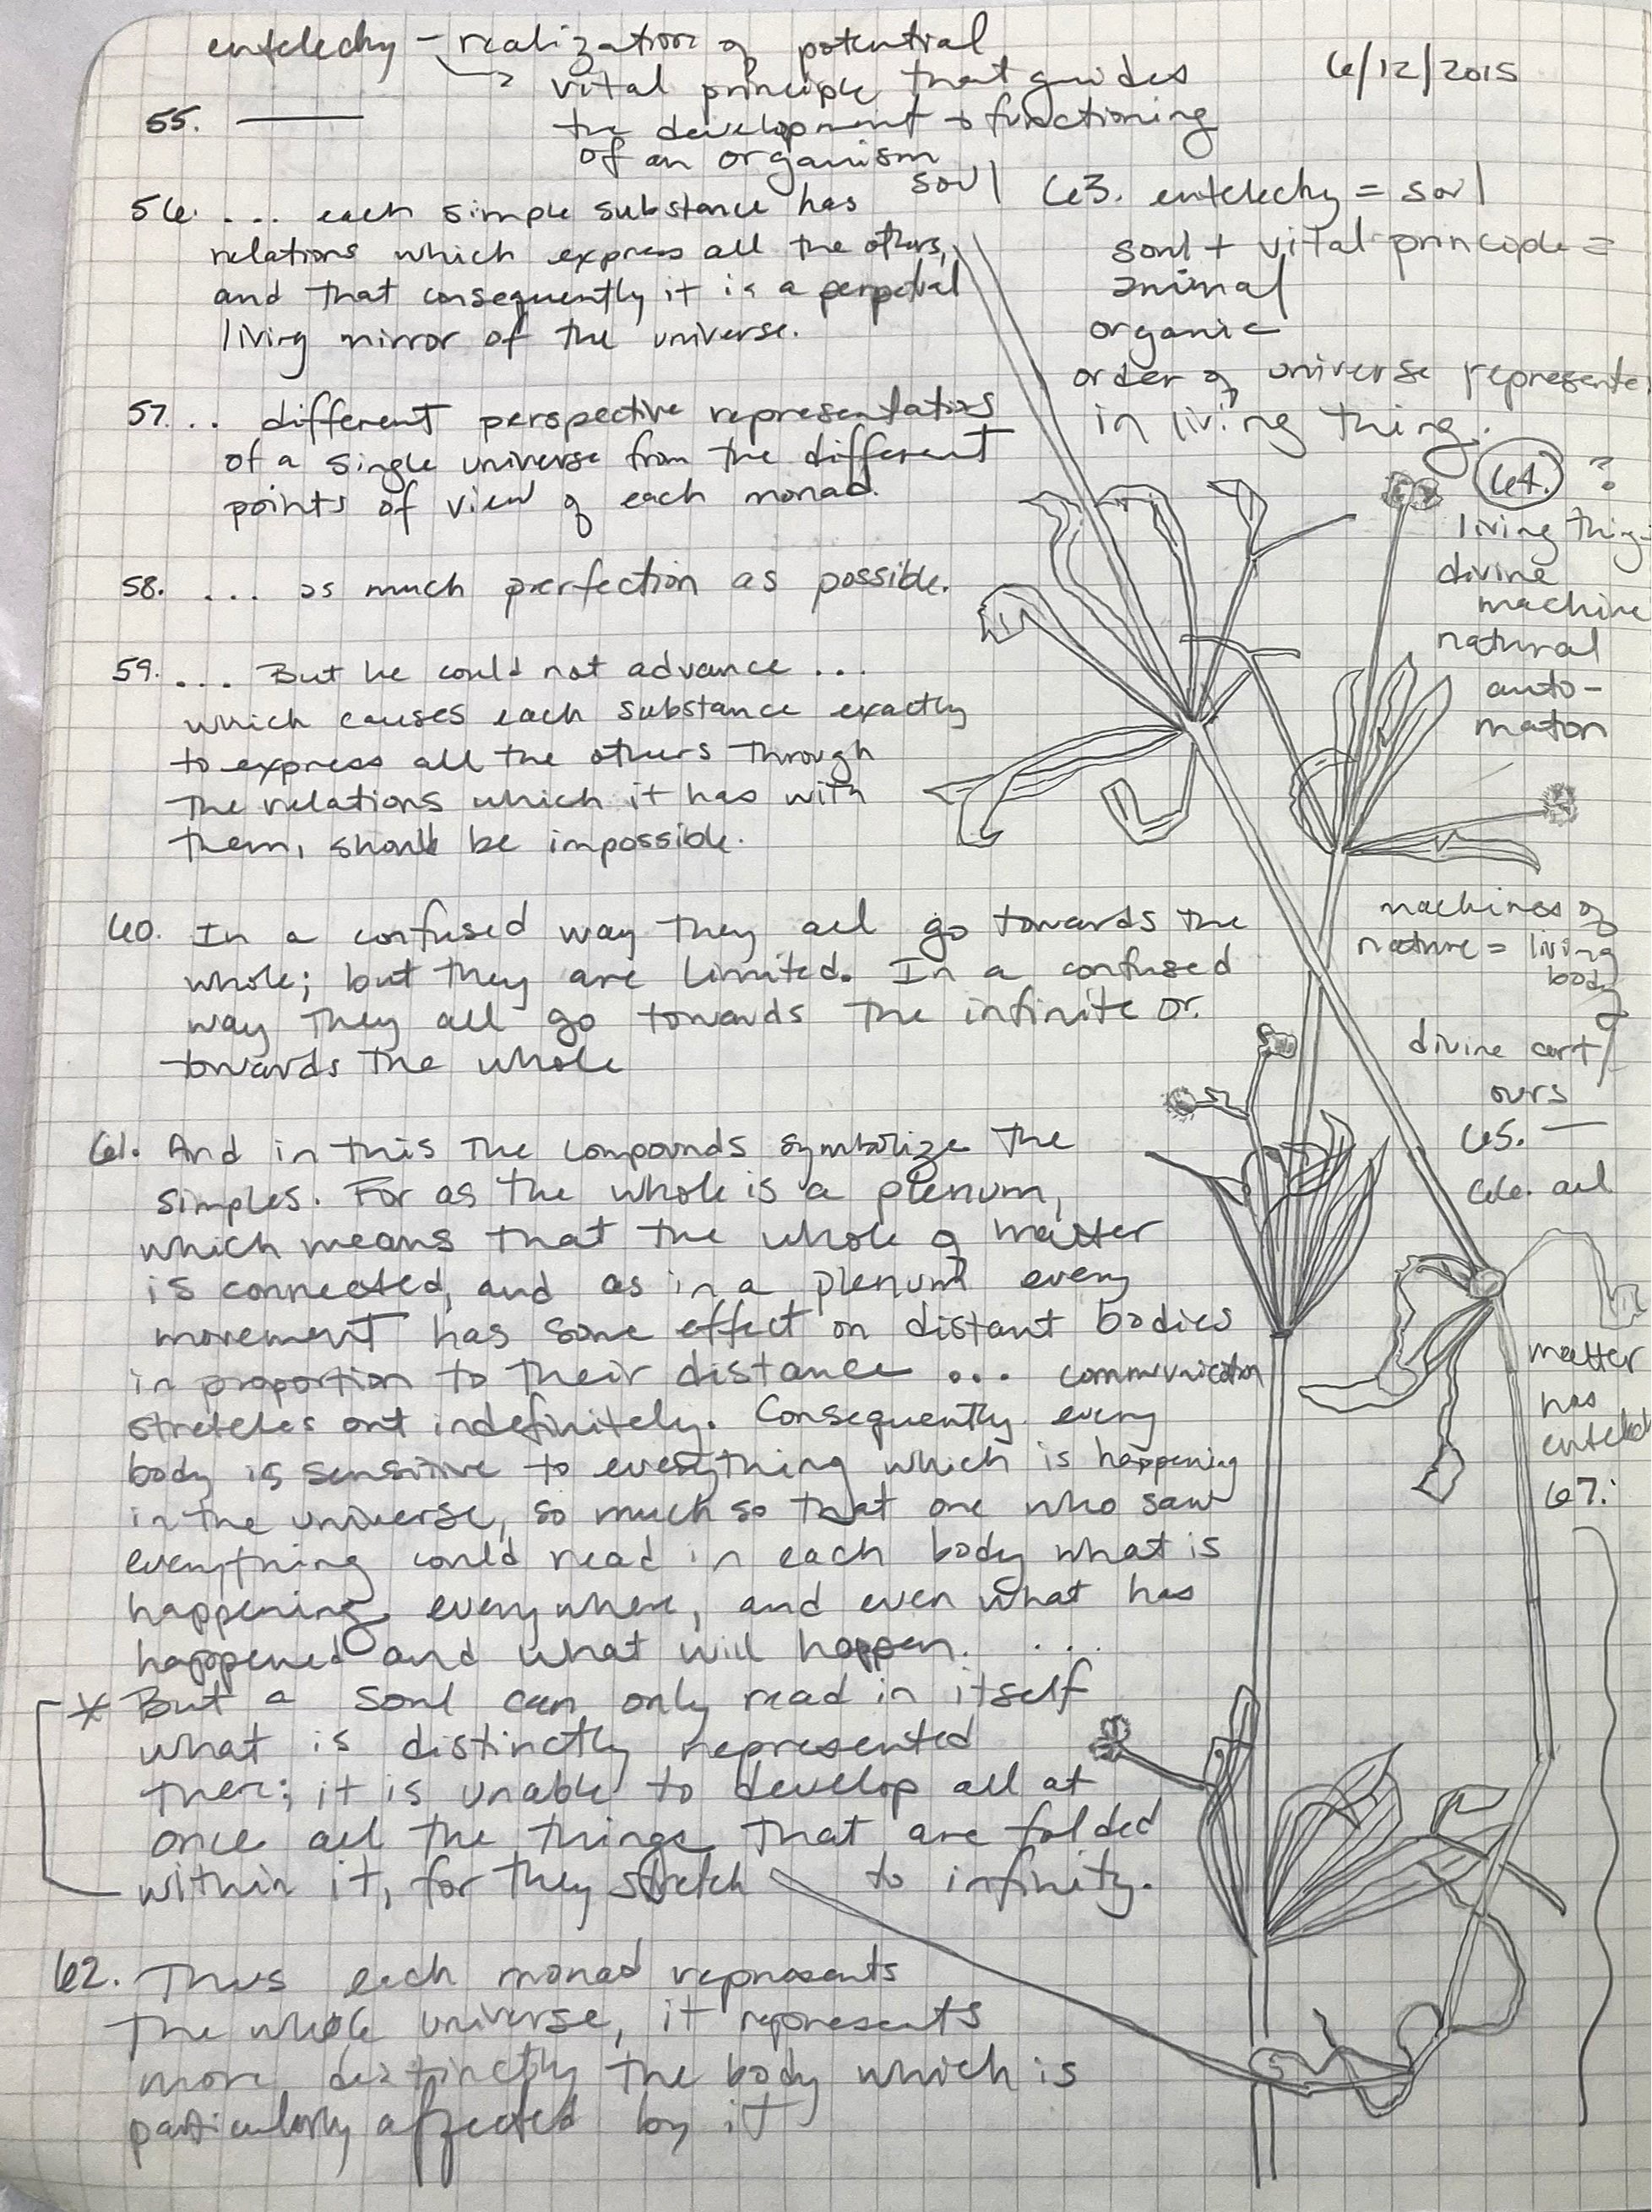 entelechy – realization of potential
vital principle that guides
the development + functioning
of an organism
soul
6/12/2015
55. ———
56. ... each simple substance has
relations which express all the others,
and that consequently it is a perpetual
living mirror of the universe.
57... different perspective representations
of a single universe from the different
points of view of each monad.
58. ... as much perfection as possible.
59. ... But he could not advance ...
which causes each substance exactly
to express all the others through
the relations which it has with
them, should be impossible.
60. In a confused way they all go towards the
whole; but they are limited. In a confused
way they all go towards the infinite or
towards the whole
61. And in this the compounds symbolize the
simples. For as the whole is a plenum,
which means that the whole of matter
is connected, and as in a plenum every
movement has some effect on distant bodies
in proportion to their distance ... communication
stretches out indefinitely. Consequently every
body is sensitive to everything which is happening
in the universe, so much so that one who saw
everything could read in each body what is
happening everywhere, and even what has
happened and what will happen. ....
* But a soul can only read in itself
what is distinctly represented
there; it is unable to develop all at
once all the things that are folded
within it, for they stretch to infinity.
62. Thus each monad represents
the whole universe, it represents
more distinctly the body which is
particularly affected by it
63. entelechy = soul
soul + vital principle =
animal
organic
order of universe represente
in living thing.
64. ?
living thing
divine
machine
natural
auto-
maton
machines of
nature = living
body
divine art/
ours
65. —
66. all
matter
has
entelech
67.